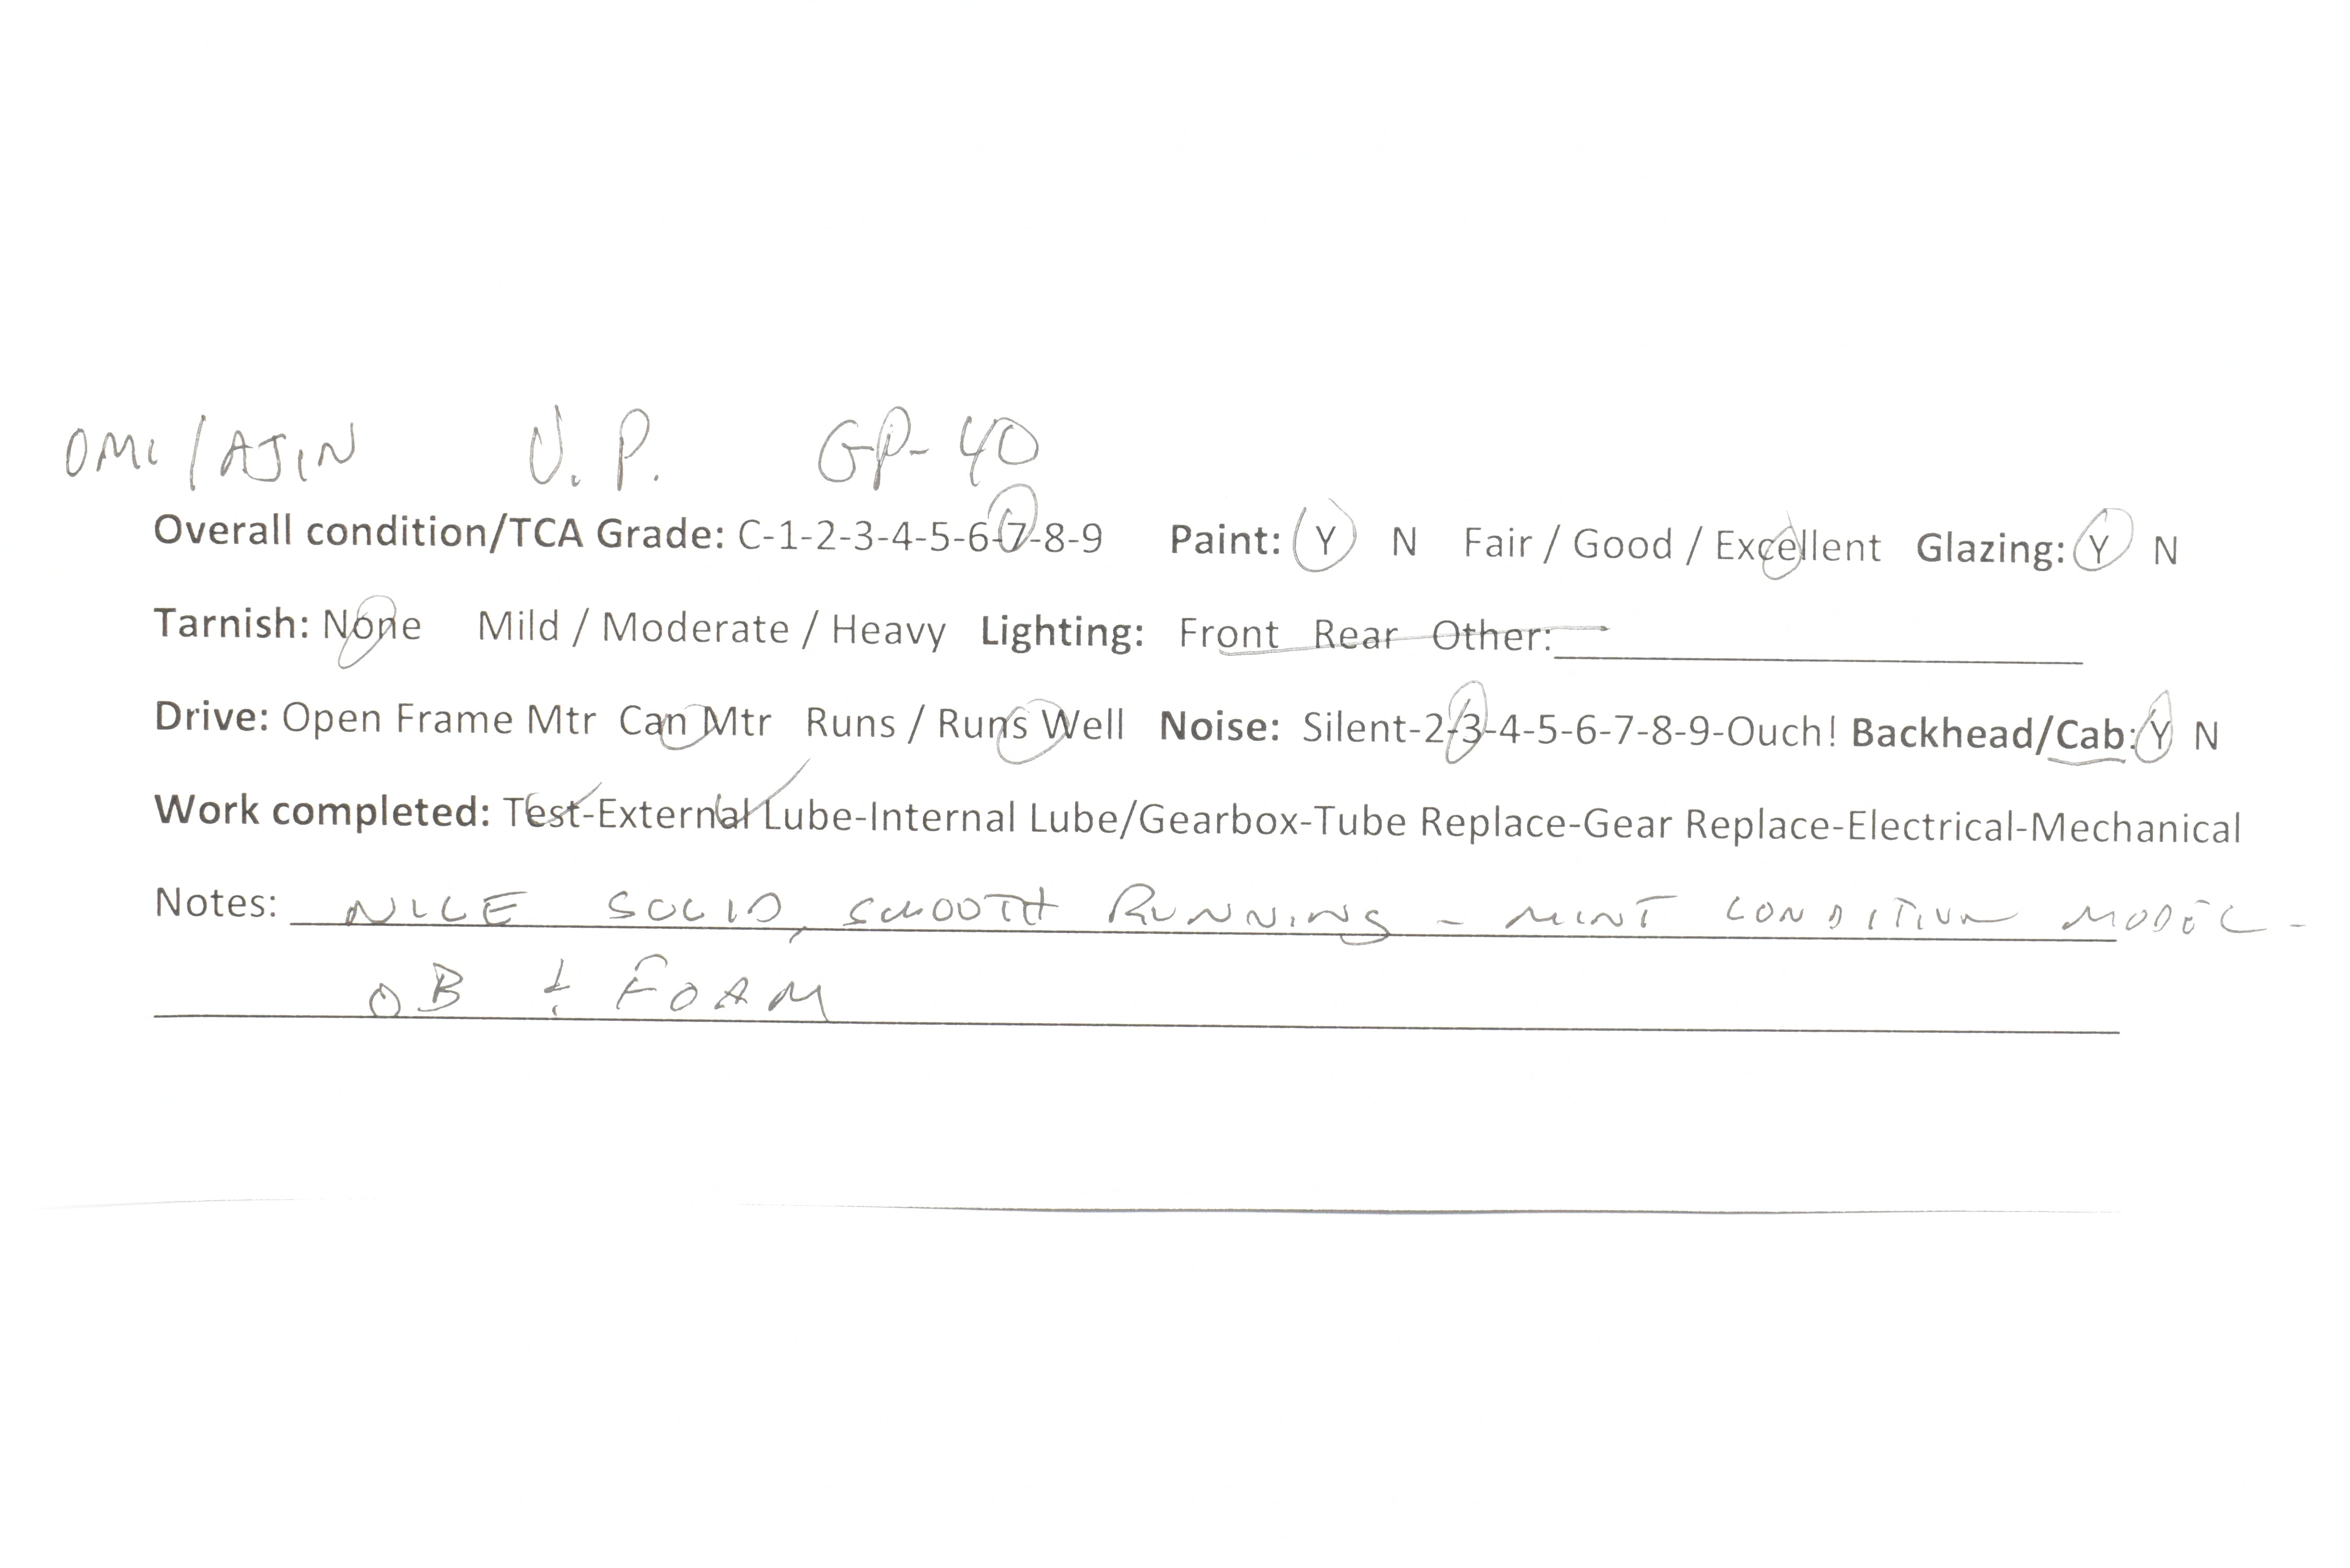 OMI/AJIN U.P. GP-40
Overall condition/TCA Grade: C-1-2-3-4-5-6-7-8-9 Paint: Y N Fair / Good / Excellent Glazing: Y N
Tarnish: None Mild / Moderate / Heavy Lighting: Front Rear Other:
Drive: Open Frame Mtr Can Mtr Runs / Runs Well Noise: Silent-2-3-4-5-6-7-8-9-Ouch! Backhead/Cab: Y N
Work completed: Test-External Lube-Internal Lube/Gearbox-Tube Replace-Gear Replace-Electrical-Mechanical
Notes: NICE SOLID, SMOOTH RUNNING - MINT CONDITION MODEL -
OB & FOAM